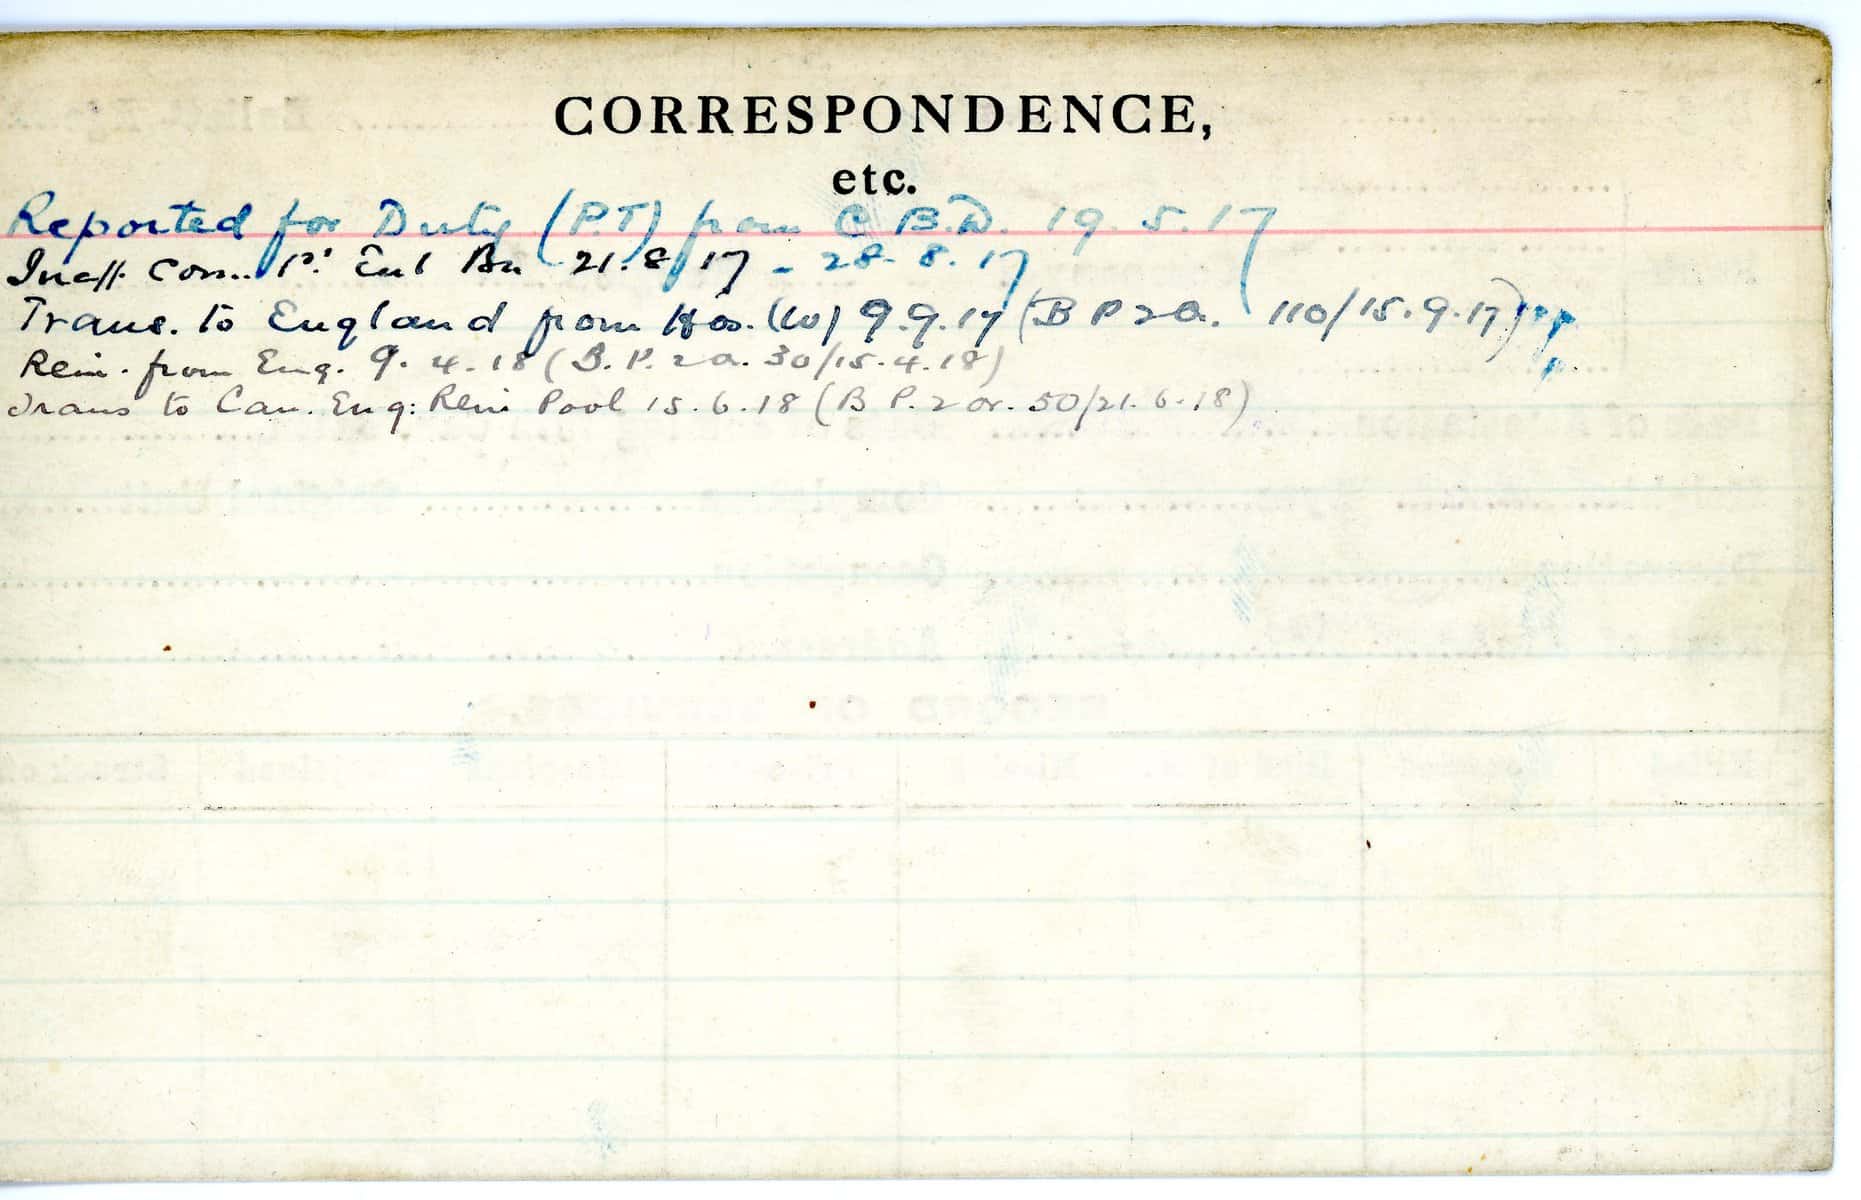 CORRESPONDENCE,
etc.
Reported for Duty (P.T) from C.B.D. 19.5.17
Ineff. Con.. Ent Bn 21.8.17 - 28.8.17
Trans. to England from Hos. (W) 9.9.17 (B P 2a. 110/15.9.17)
Rein. from Eng. 9.4.18 (B.P. 2a. 30/15.4.18)
Trans to Can. Eng: Rein Pool 15.6.18 (B P. 2 or. 50/21.6.18)